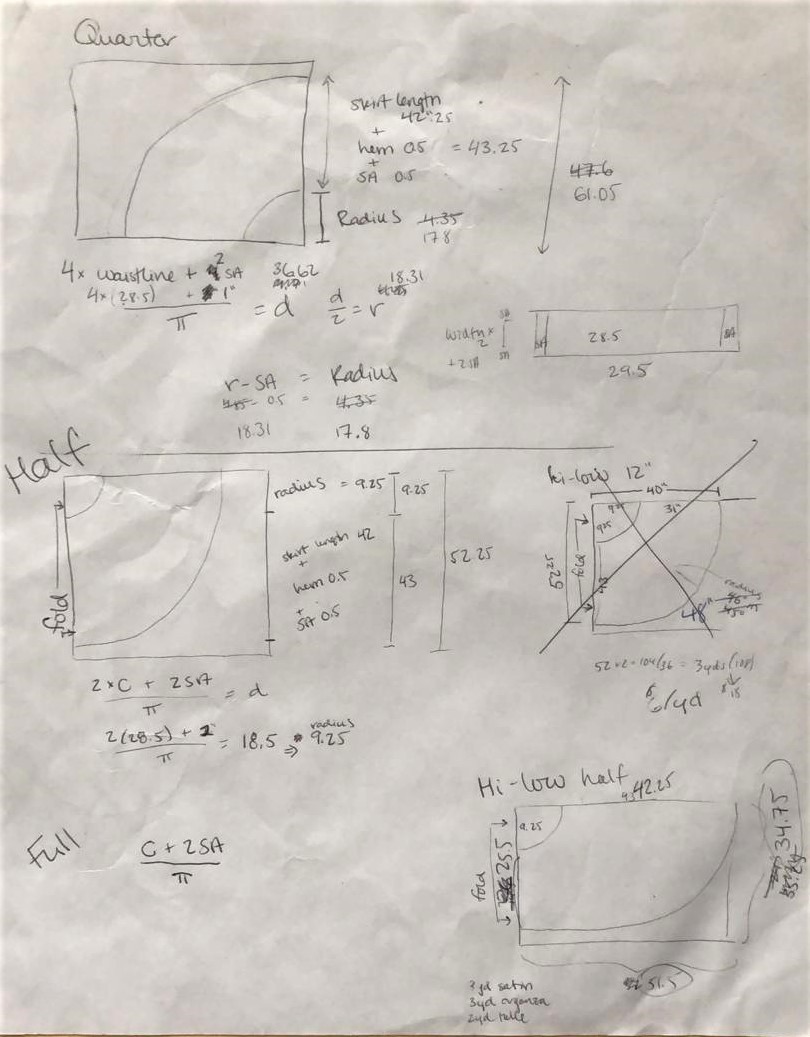 Quarter
skirt length
42".25
+
hem 0.5 = 43.25
+
SA 0.5
Radius 4.35
17.8
47.6
61.05
4x waistline + 2 SA
4x (28.5) + 1"
π
36.62
= d
d
2
= r
18.31
width x
2
+ 2SA
SA
SA
SA
28.5
SA
29.5
r - SA = Radius
0.5 = 4.35
18.31 17.8
Half
fold
radius = 9.25
9.25
skirt length 42
+
hem 0.5
+
SA 0.5
43
52.25
2 x C + 2SA
π
= d
2(28.5) + 1
π
= 18.5 ⇒
radius
9.25
hi-low 12"
40"
31"
9.25
52.25
fold
48"
radius
52 x 2 = 104/36 = 3yds (108)
$6/yd
$18
Hi-low half
42.25
9.25
fold
25.5
34.75
51.5
Full
C + 2SA
π
3yd satin
3yd organza
2yd tulle